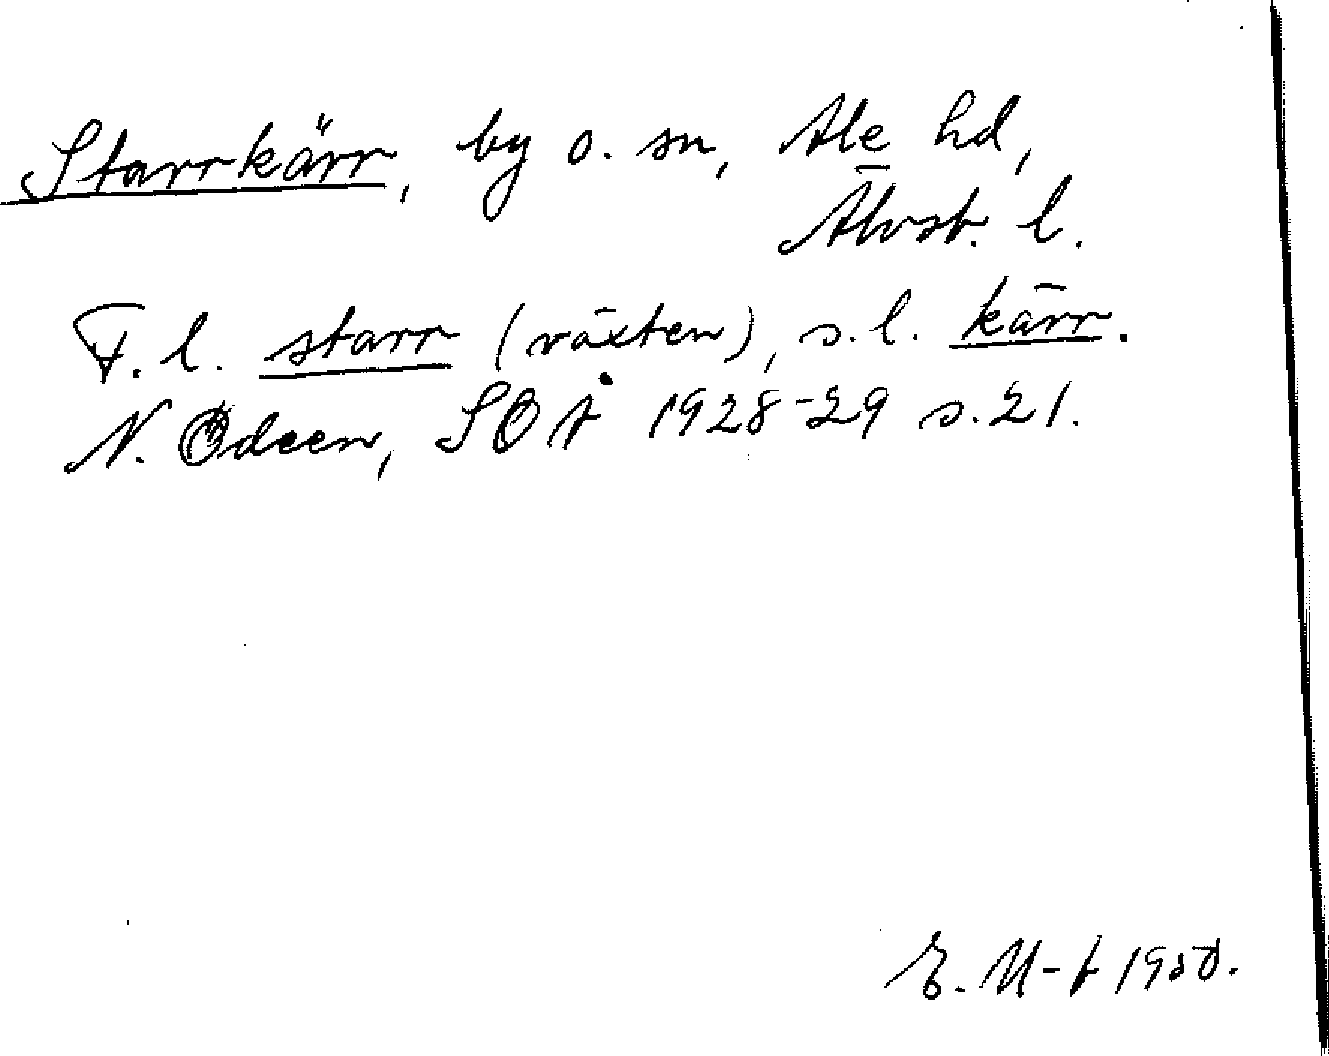 Starrkärr, by o. sn, Ale hd,
Älvsb. l.
F.l. starr (växten), s.l. kärr.
N. Ödeen, SOÅ 1928-29 s.21.
E. M-t 1950.